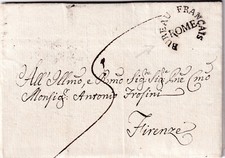 BUREAU FRANÇAIS
ROME
All'Illmo, e Rmo Sig^re Sig^re
Monsig^r Antonio Frosini
Firenze